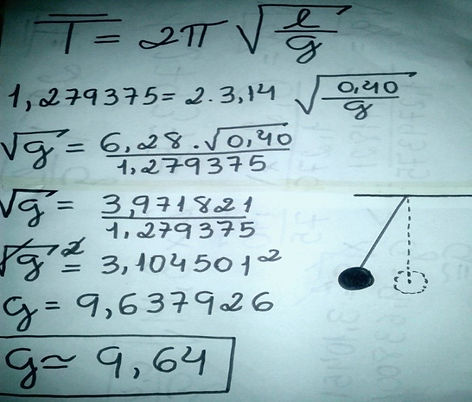 T = 2π √(l/g)
1,279375 = 2.3,14 √(0,40/g)
√g = 6,28.√0,40 / 1,279375
√g = 3,971821 / 1,279375
√g² = 3,104501²
g = 9,637926
g ≃ 9,64